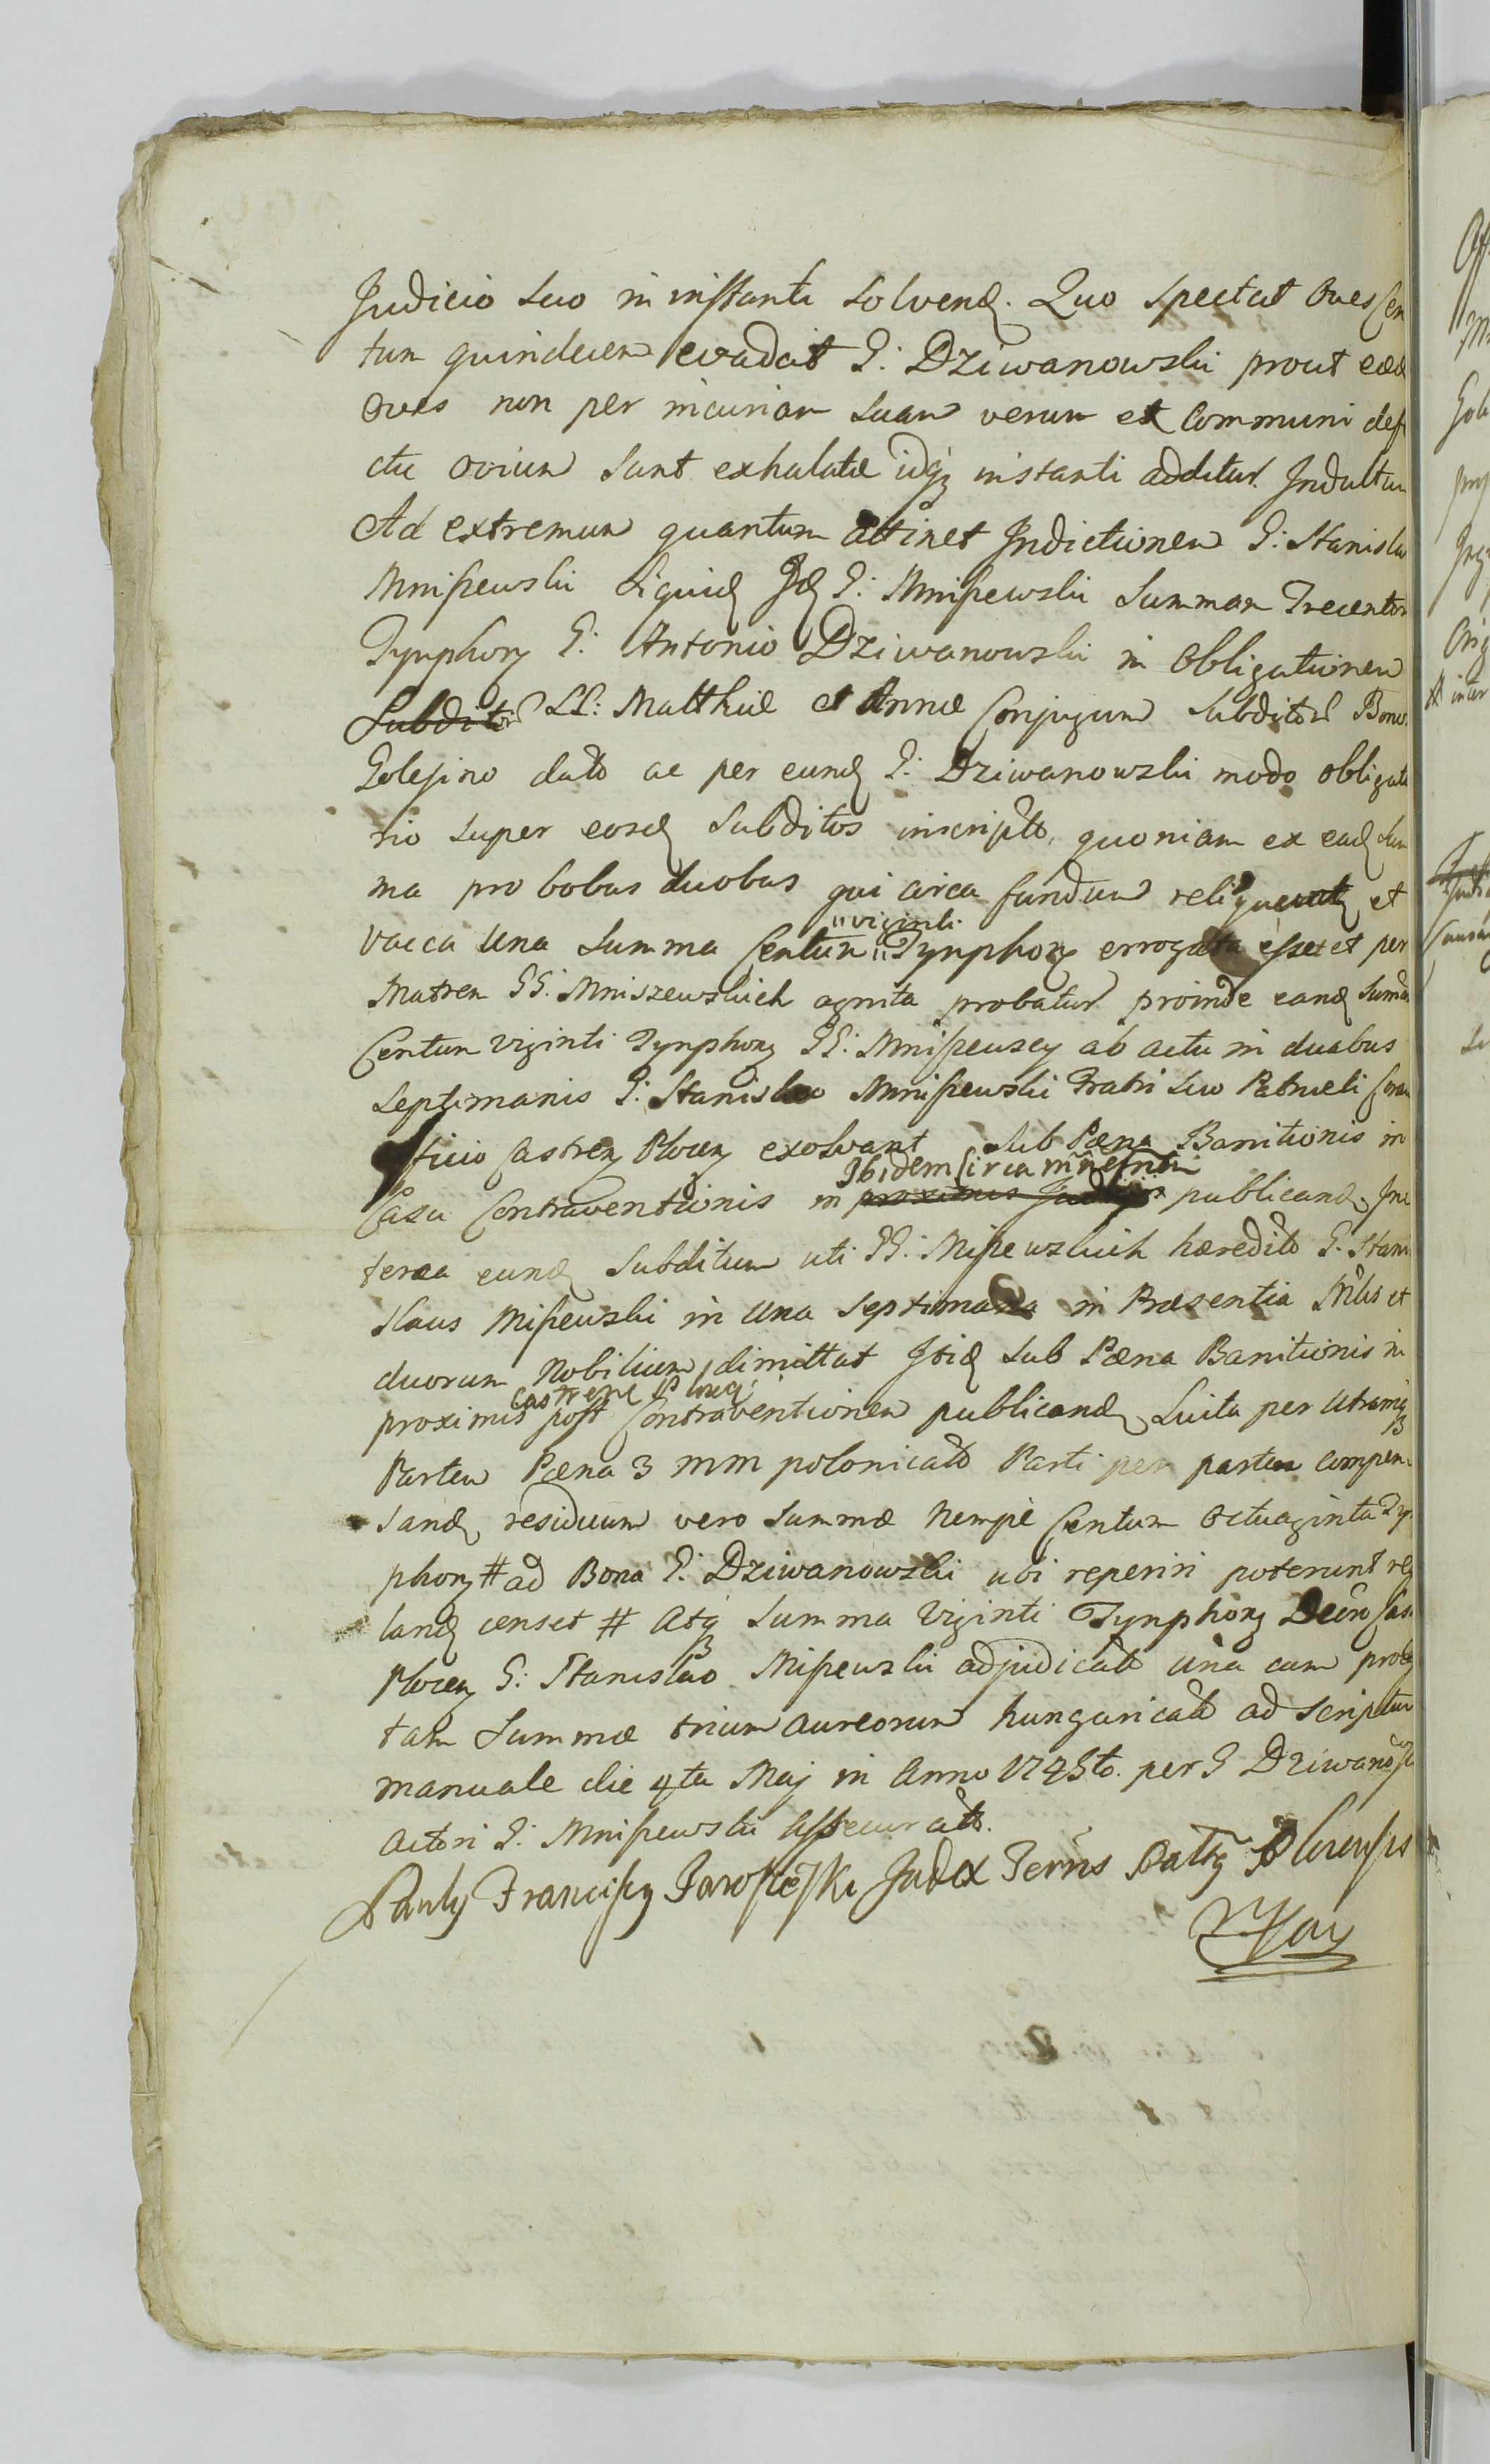 Judicio suo in instanti solvend. Quo spectat Oves Cen
tum quindecem evadat G: Dziwanowski prout eæd
Oves non per incuriam suam verum ex Communi defe
ctu ovium sunt exhalatæ idq instanti additur. Indultum
Ad extremum quantum attinet Indictionem G: Stanislai
Mniszewski Liquid Id G: Mniszewski Summam Trecentor
Tynphon G: Antonio Dziwanowski in Obligationem
Subditor LL: Matthiæ et Annæ Conjugum Subditor Bonor
Golejino dato ac per eund G: Dziwanowski modo obligato
rio super eosd Subditos inscripto, quoniam ex ead Sum
ma pro bobus duobus qui circa fundum et
vacca una Summa Centum "viginti" Tynphon errogata esset et per
Matrem GG: Mniszewskich agnita probatur proinde eand Summam
Centum viginti Tynphon GG: Mniszewscy ab actu in duabus
Septimanis G: Stanislao Mniszewski Fratri suo Patrueli Coram
fficio Castren Plocen exolvant sub Pæna Bannitionis in
Ibidem circa
Casu Contraventionis in proximis Judicijs publicand, In
terea eund Subditum uti GG: Miszewskich hæredit G: Stani
slaus Miszewski in una Septimana in Præsentia Mlis et
duorum Nobilium dimittat Itid sub Pæna Banitionis in
Castren Plocen
proximis post Contraventionem publicand, Luita per Utramq
Partem Pæna 3 mm polonicalt Parti per partem compen
sand, residuum vero Summæ nempè Centum Octuaginta Tyn
phon # ad Bona G: Dziwanowski ubi reperiri poterunt re
land censet # Atq Summa Viginti Tynphon Decro Cast
Plocen G: Stanislao Miszewski adjudicat una cum
tam Summæ trium aureorum hungaricalt ad Scriptum
manuale die 4ta Maj in Anno 1745to. per G Dziwanowski
actori G: Mniszewski assecurat.
Pauly Franciscy Jaroszewski Judex Terris Paltt Plocensis